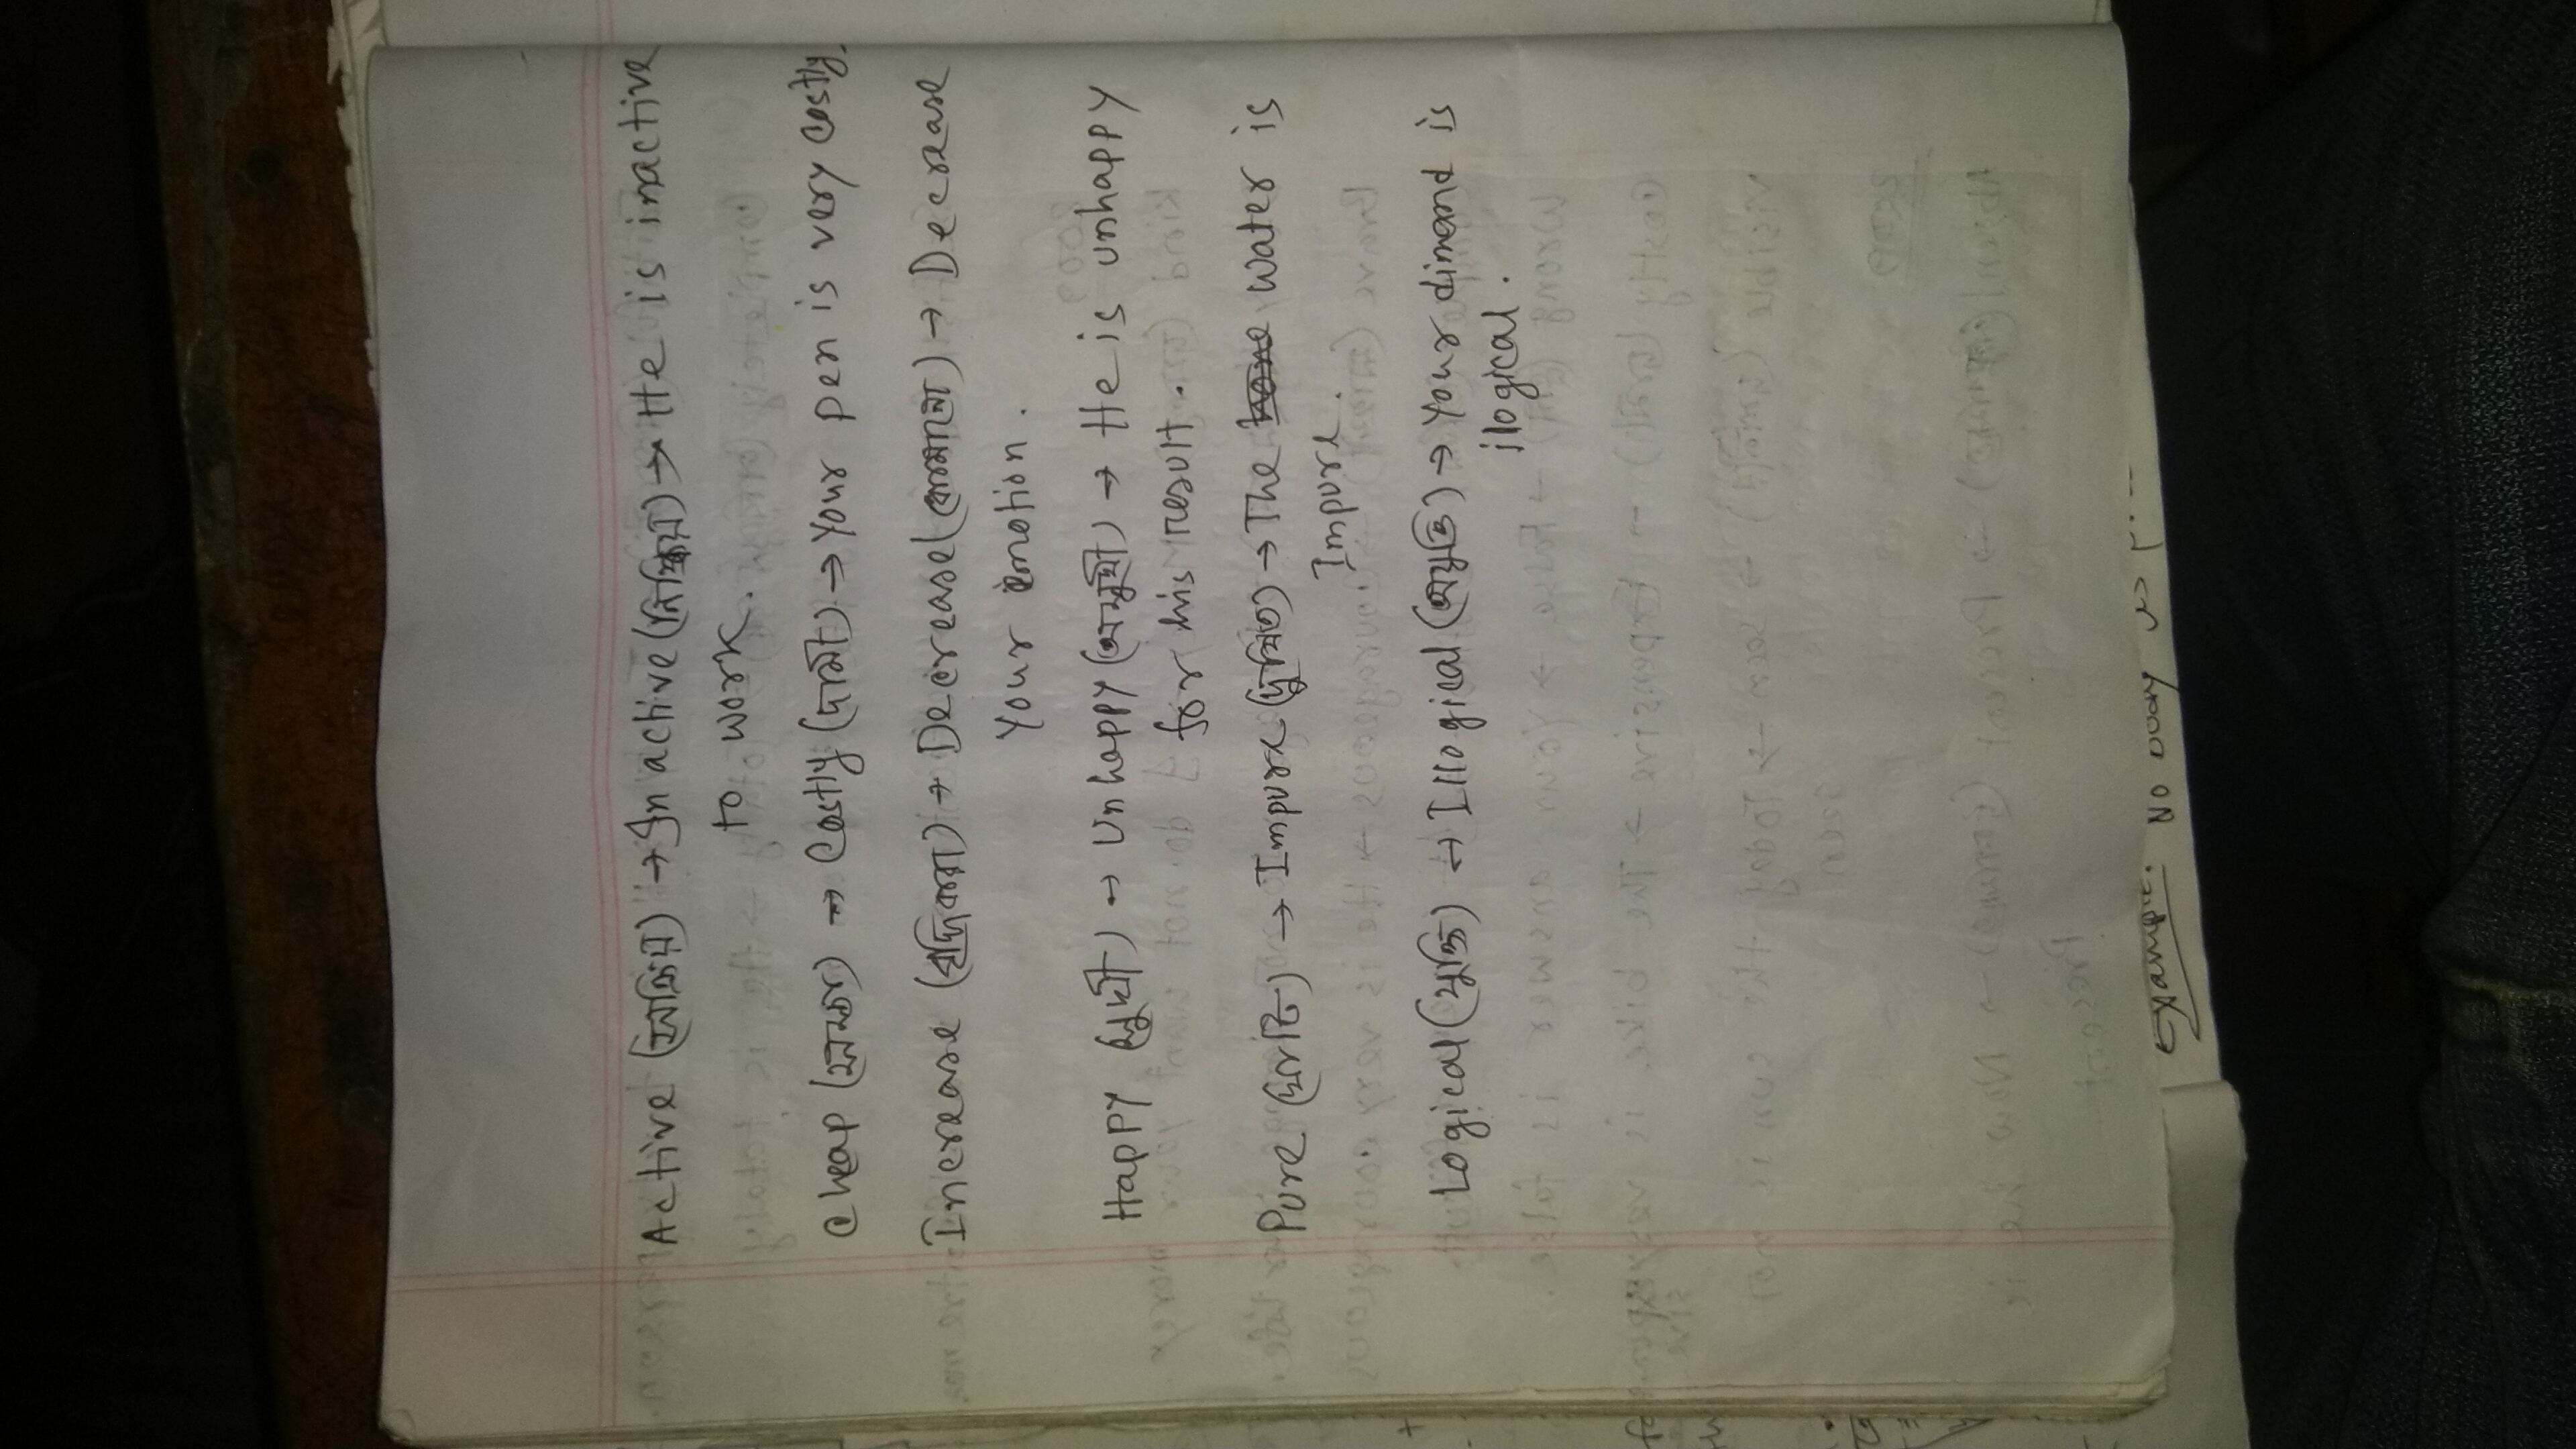 Active (সক্রিয়) → In active (নিষ্ক্রিয়) → He is inactive
to work.
Cheap (সস্তা) → Costly (দামী) → Your pen is very costly.
Increase (বৃদ্ধিকরা) → Decrease (কমানো) → Decrease
Your emotion.
Happy (সুখী) → Unhappy (অসুখী) → He is unhappy
for his result.
Pure (খাটি) → Impure (দুষিত) → The water is
Impure.
Logical (যুক্তি) → Illogical (অযুক্তি) → Your dimand is
ilogical.
Example: No body is